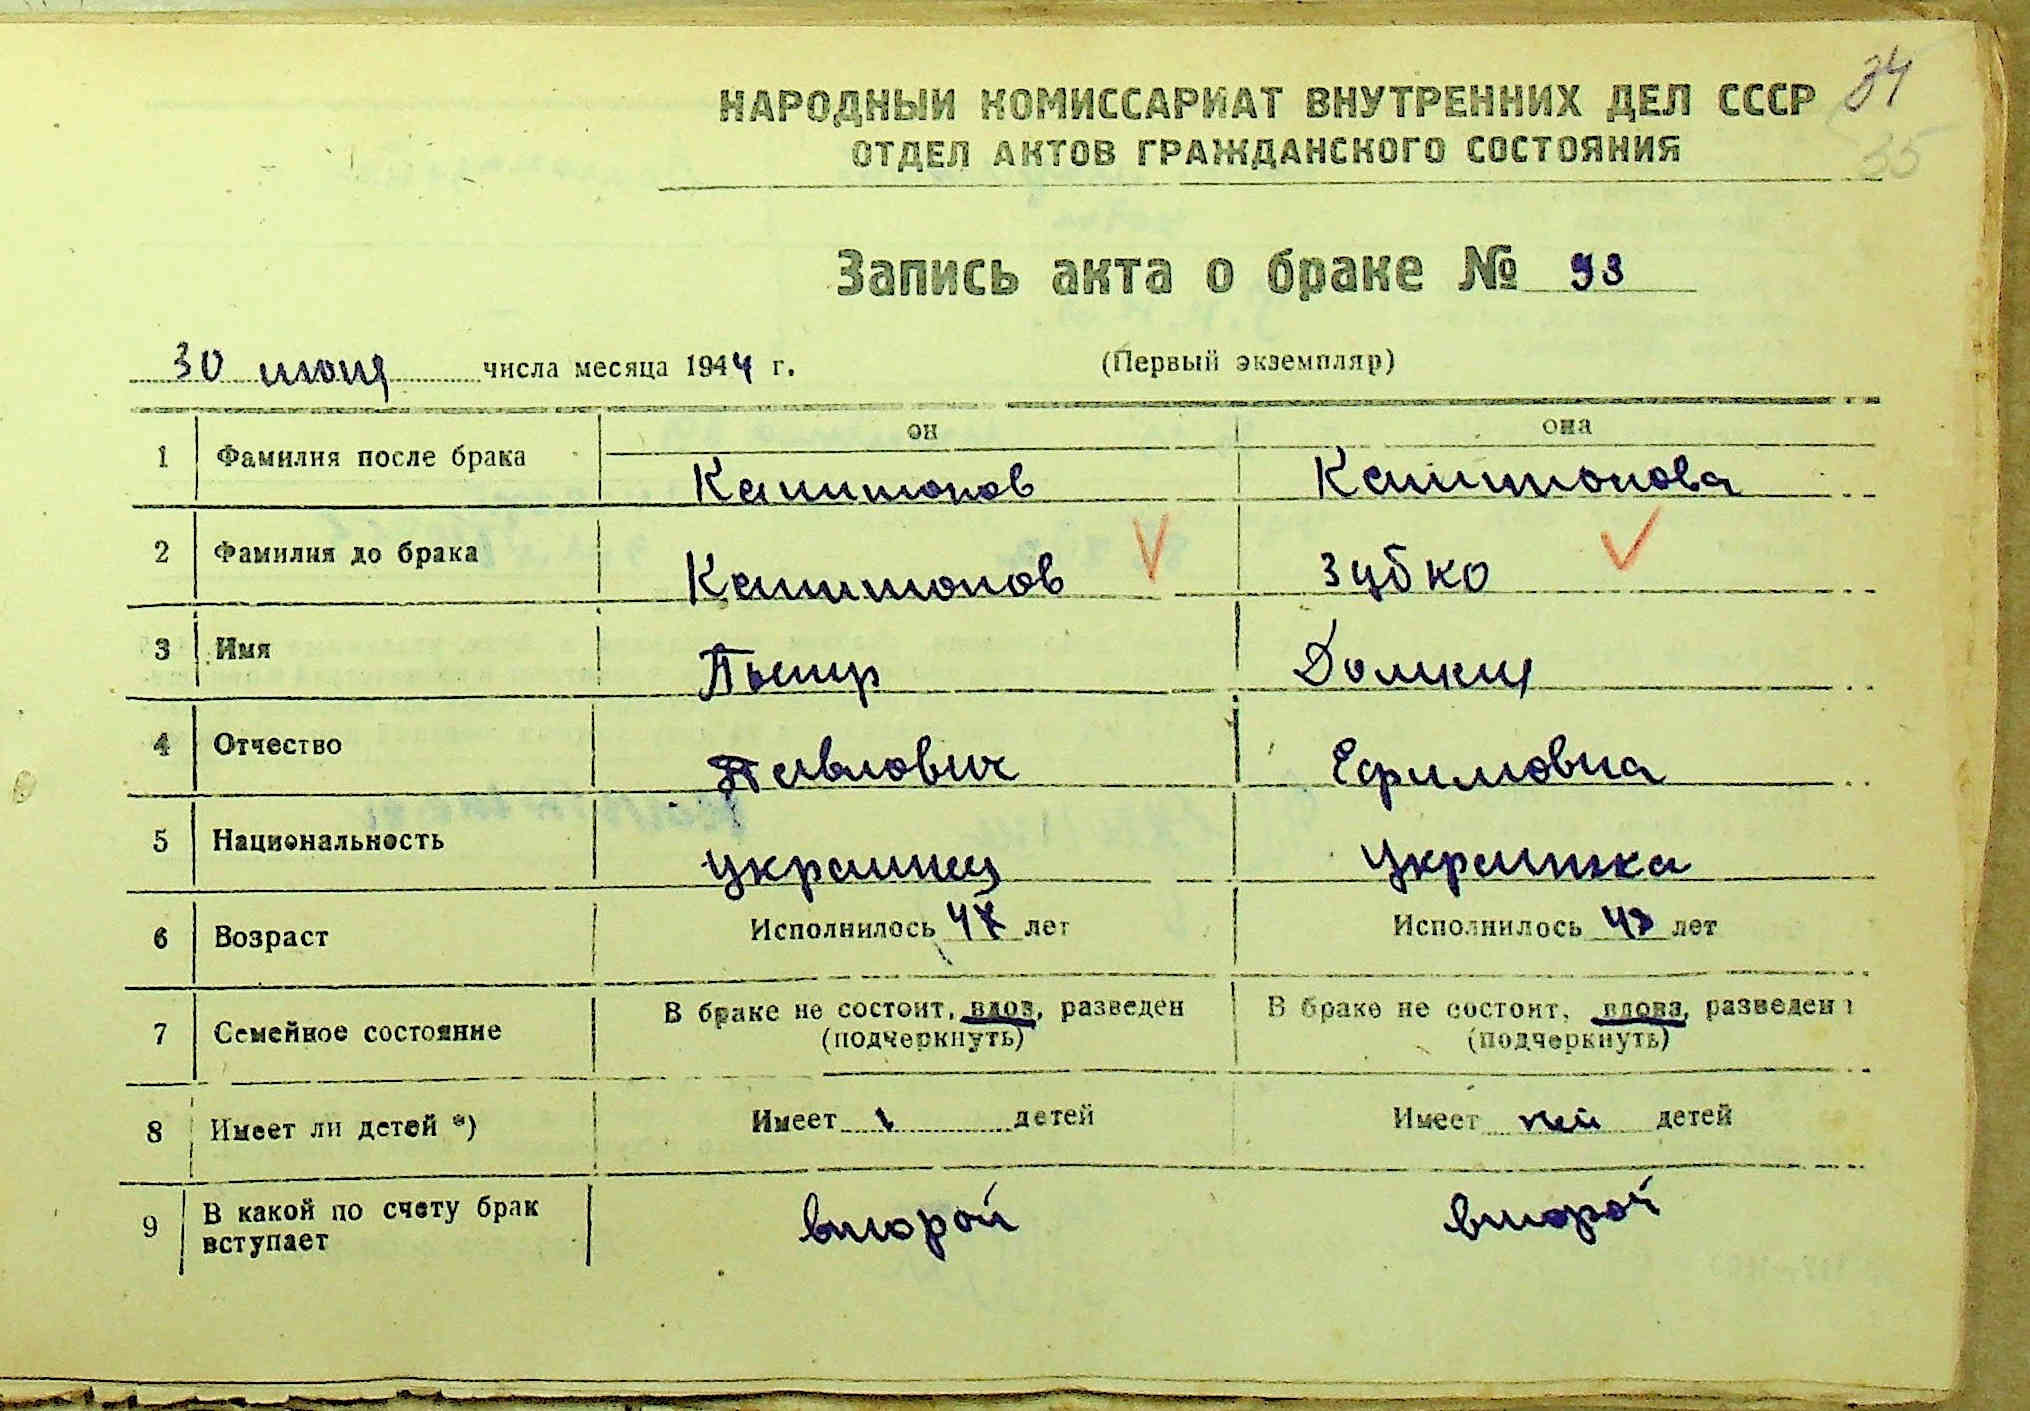 34
35
НАРОДНЫЙ КОМИССАРИАТ ВНУТРЕННИХ ДЕЛ СССР
ОТДЕЛ АКТОВ ГРАЖДАНСКОГО СОСТОЯНИЯ
Запись акта о браке № 93
30 июня числа месяца 1944 г. (Первый экземпляр)
он она
1 Фамилия после брака Капитонов Капитонова
2 Фамилия до брака Капитонов Зубко
3 Имя Петр Домкия
4 Отчество Павлович Ефимовна
5 Национальность украинец украинка
6 Возраст Исполнилось 47 лет Исполнилось 43 лет
7 Семейное состояние В браке не состоит, вдов, разведен В браке не состоит, вдова, разведена
(подчеркнуть) (подчеркнуть)
8 Имеет ли детей *) Имеет 1 детей Имеет детей
9 В какой по счету брак вступает второй второй